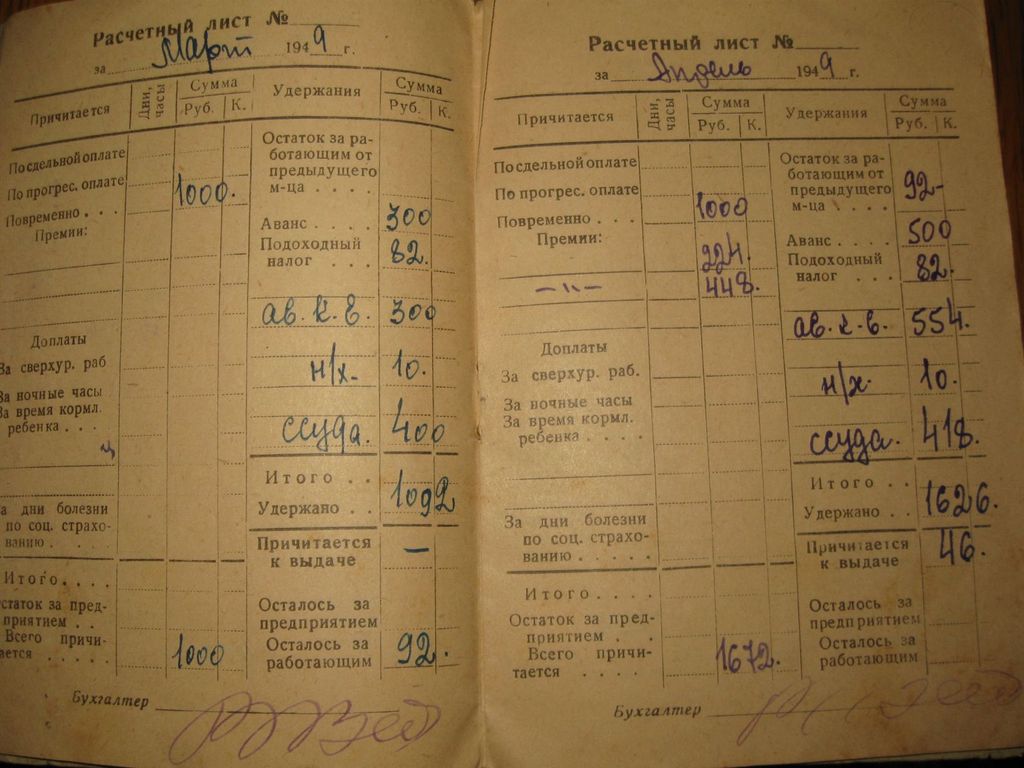 Расчетный лист №
за Март 1949 г.
Причитается
Дни, часы
Сумма
Руб. К.
Удержания
Сумма
Руб. К.
По сдельной оплате
По прогрес. оплате
1000.
Повременно . . .
Премии:
Доплаты
За сверхур. раб
За ночные часы
За время кормл.
ребенка . . .
а дни болезни
по соц. страхо-
ванию . . . .
Итого . . . .
статок за пред-
приятием . .
Всего причи-
ается . . . . .
1000
Остаток за ра-
ботающим от
предыдущего
м-ца . . . .
Аванс . . . . 300
Подоходный
налог . . . 82.
ав. к. в. 300
н/х- 10.
ссуда. 400
Итого . .
Удержано . . 1092
Причитается
к выдаче —
Осталось за
предприятием
Осталось за
работающим 92.
Бухгалтер
Расчетный лист №
за Апрель 1949 г.
Причитается
Дни, часы
Сумма
Руб. К.
Удержания
Сумма
Руб. К.
По сдельной оплате
По прогрес. оплате
Повременно . . . . 1000
Премии:
224.
—"— 448.
Доплаты
За сверхур. раб.
За ночные часы
За время кормл.
ребенка . . . .
За дни болезни
по соц. страхо-
ванию . . . . .
Итого . . . .
Остаток за пред-
приятием . .
Всего причи-
тается . . . . 1672.
Остаток за ра-
ботающим от
предыдущего
м-ца . . . . 92-
Аванс . . . . 500
Подоходный
налог . . . 82.
ав. к. в. 554.
н/х. 10.
ссуда. 418.
Итого . .
Удержано . . 1626.
Причитается
к выдаче 46.
Осталось за
предприятием
Осталось за
работающим
Бухгалтер